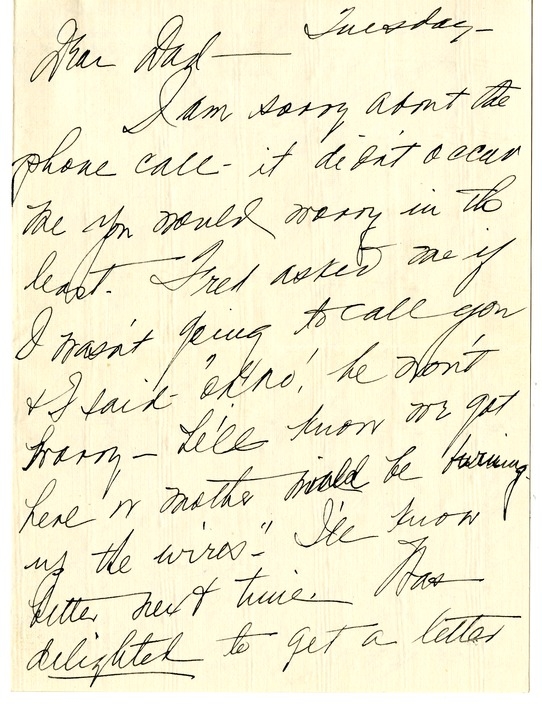 Tuesday —
Dear Dad —
I am sorry about the
phone call - it didn't occur
me you would worry in the
least. Fred asked me if
I wasn't going to call you
& I said - "oh no, he won't
worry — he'll know we got
here or mother would be burning
up the wires -" I'll know
better next time. Was
delighted to get a letter